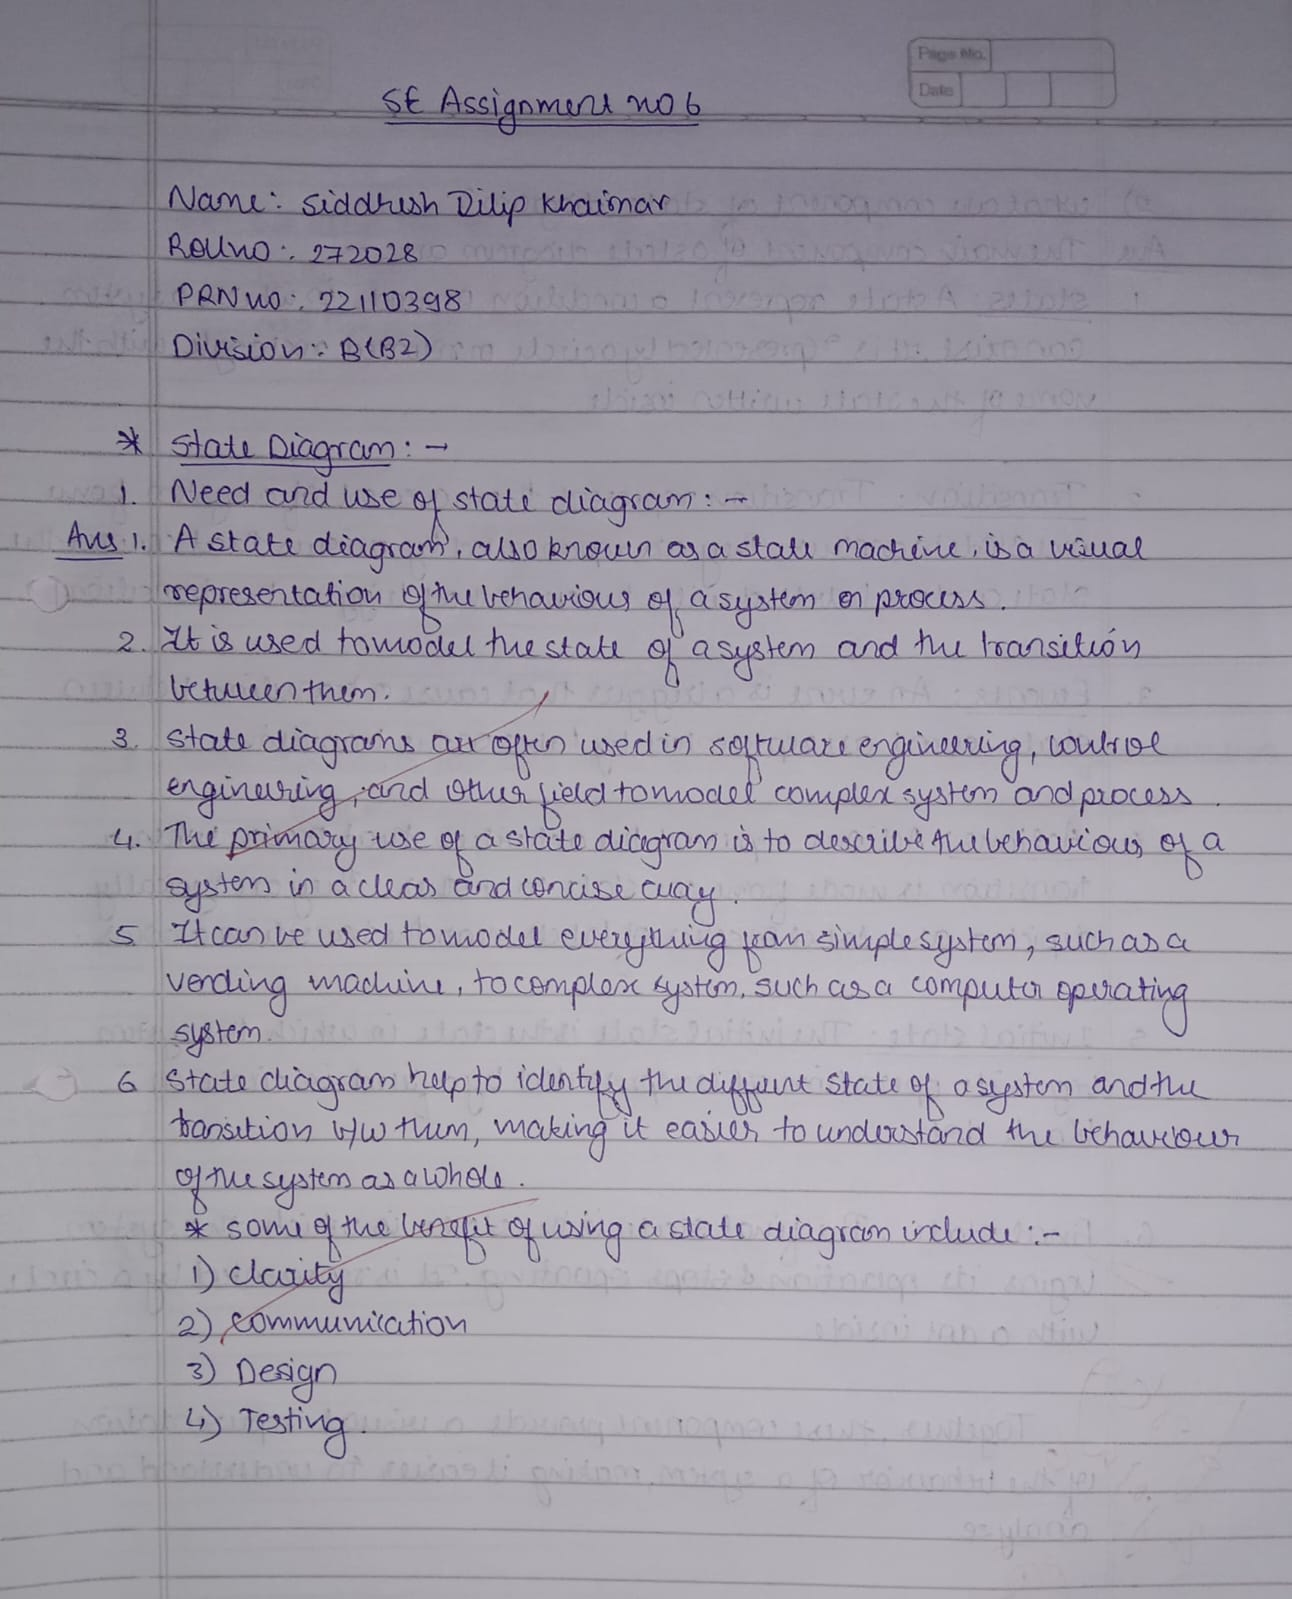 Page No.
Date
SE Assignment no 6
Name: Siddhesh Dilip Khairnar
Roll no: 272028
PRN no: 22110398
Division: B(B2)
* State Diagram: -
1. Need and use of state diagram: -
Ans 1. A state diagram, also known as a state machine, is a visual
representation of the behaviour of a system or process.
2. It is used to model the state of a system and the transition
between them.
3. State diagrams are often used in software engineering, control
engineering, and other field to model complex system and process.
4. The primary use of a state diagram is to describe the behaviour of a
system in a clear and concise way.
5 It can be used to model everything from simple system, such as a
vending machine, to complex system, such as a computer operating
system.
6 State diagram help to identify the different state of a system and the
transition b/w them, making it easier to understand the behaviour
of the system as a whole.
* some of the benefit of using a state diagram include :-
1) clarity
2) communication
3) Design
4) Testing.